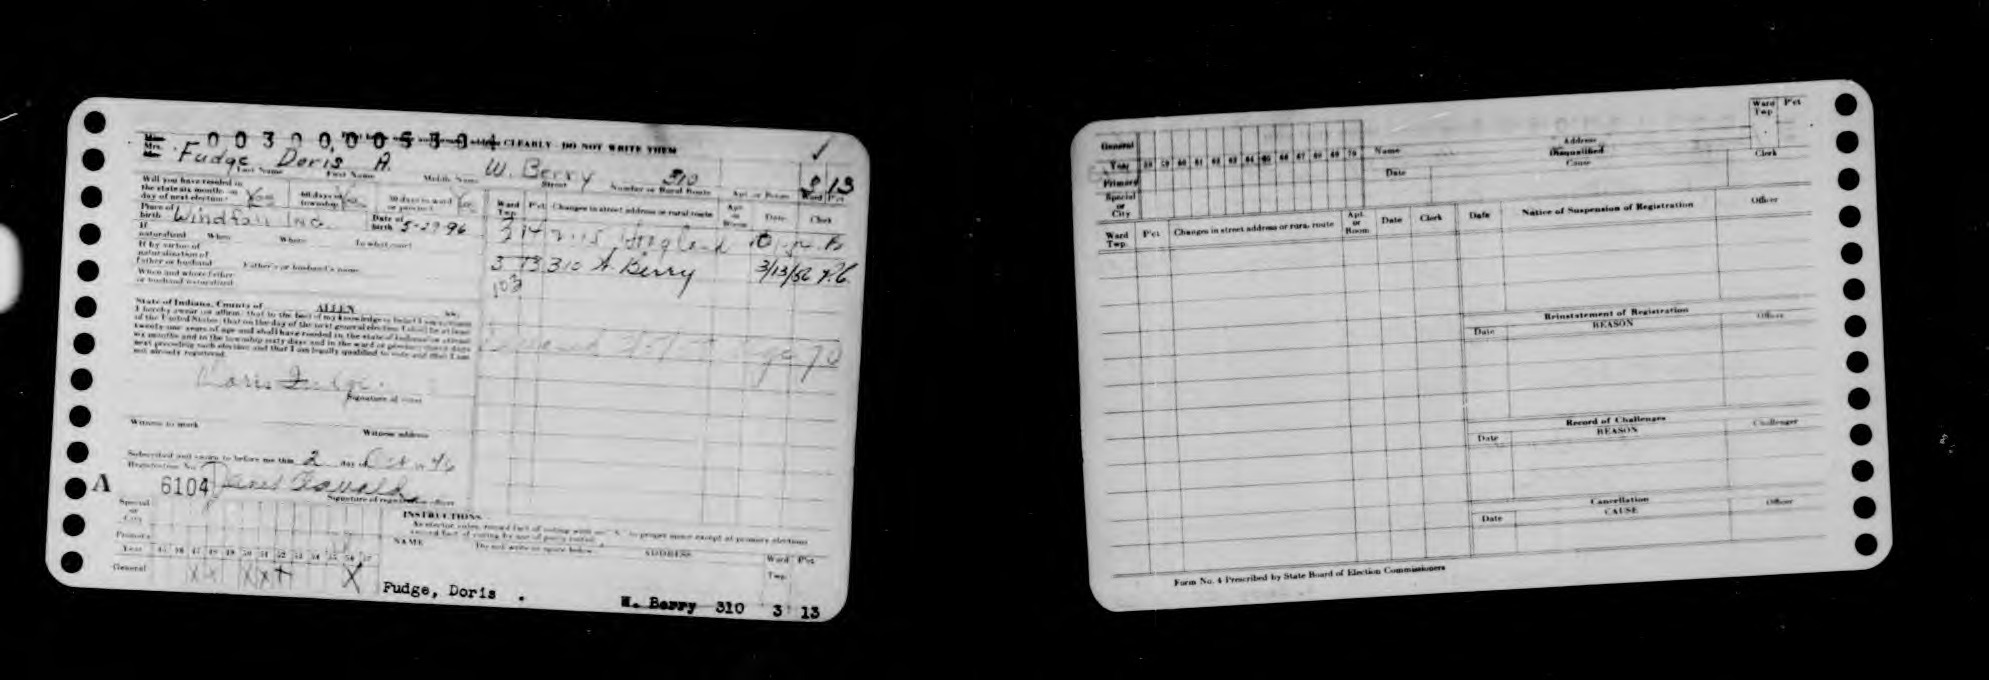 Miss
Mrs.
Mr.
CLEARLY - DO NOT WRITE THEM
Fudge Doris A. W. Berry 310 3 13
Last Name First Name Middle Name Street Number or Rural Route Apt. or Room Ward P'ct
Will you have resided in
the state six months on
day of next election? Yes
60 days in
township
30 days in ward
or precinct
Place of
birth Windfall Ind.
Date of
birth 5-27-96
If
naturalized When Where In what court
If by virtue of
naturalization of
father or husband Father's or husband's name
When and where father
or husband naturalized
Ward
Twp. P'ct Changes in street address or rural route Apt.
or
Room Date Clerk
3 14 Hoagland
3 13 310 W. Berry 3/13/56
103
State of Indiana, County of ALLEN ss:
I hereby swear (or affirm) that to the best of my knowledge or belief I am a citizen
of the United States; that on the day of the next general election I shall be at least
twenty-one years of age and shall have resided in the state of Indiana at least
six months and in the township sixty days and in the ward or precinct thirty days
next preceding such election and that I am legally qualified to vote and that I am
not already registered.
Doris Fudge
Signature of voter
Witness to mark Witness address
Subscribed and sworn to before me this 2 day of Oct 19 46
Registration No.
A 6104
Signature of registration officer
Special
or
City
Primary
Year 45 46 47 48 49 50 51 52 53 54 55 56 57
General X X X X + X
INSTRUCTIONS
As elector votes, record fact of voting with an "X" in proper space except at primary elections
record fact of voting by use of party initial.
NAME Do not write in space below ADDRESS Ward
Twp. P'ct
Fudge, Doris . W. Berry 310 3 13
General
Year 58 59 60 61 62 63 64 65 66 67 68 69 70
Primary
Special
or
City
Name Address Ward
Twp. P'ct
Disqualified
Date Cause Clerk
Ward
Twp. P'ct Changes in street address or rural route Apt.
or
Room Date Clerk
Date Notice of Suspension of Registration Officer
Reinstatement of Registration
Date REASON Officer
Record of Challenges
Date REASON Challenger
Cancellation
Date CAUSE Officer
Form No. 4 Prescribed by State Board of Election Commissioners